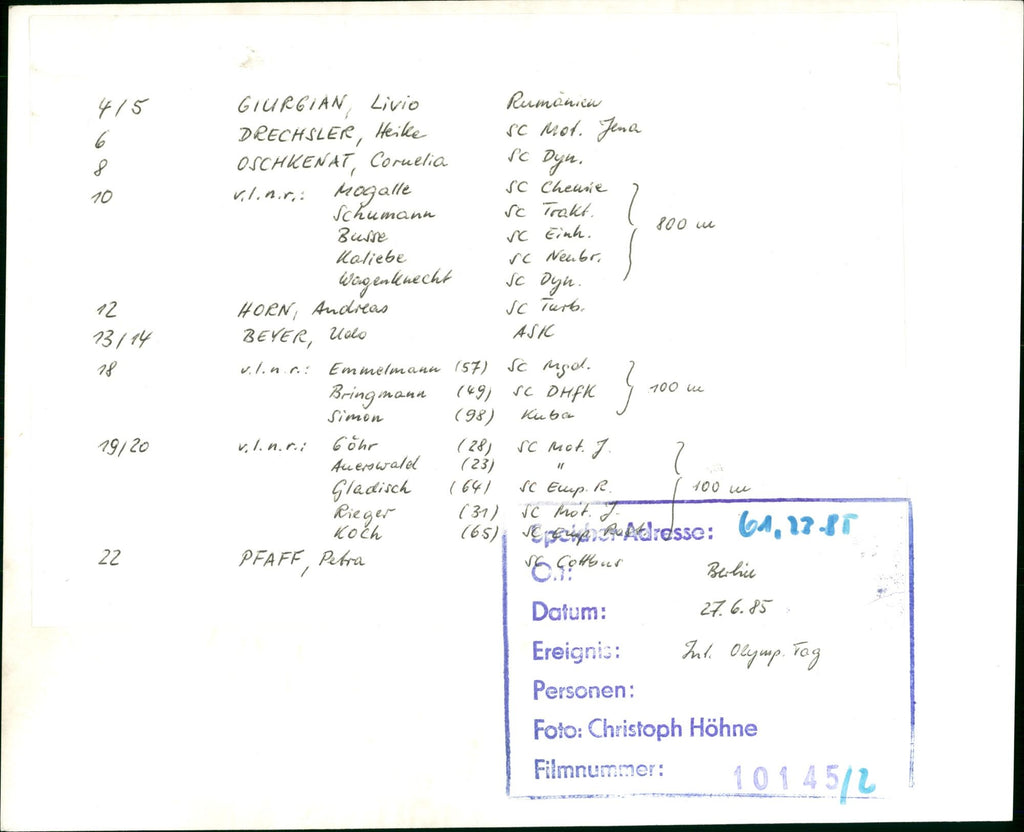 4/5 GIURGIAN, Livio Rumänien
6 DRECHSLER, Heike SC Mot. Jena
8 OSCHKENAT, Cornelia SC Dyn.
10 v.l.n.r.: Mogalle SC Chemie
Schumann SC Trakt.
Busse SC Einh. 800 m
Kaliebe SC Neubr.
Wagenknecht SC Dyn.
12 HORN, Andreas SC Turb.
13/14 BEYER, Udo ASK
18 v.l.n.r.: Emmelmann (57) SC Mgd.
Bringmann (49) SC DHfK 100 m
Simon (98) Kuba
19/20 v.l.n.r.: Göhr (28) SC Mot. J.
Auerswald (23) "
Gladisch (64) SC Emp. R. 100 m
Rieger (31) SC Mot. J.
Koch (65) SC Emp. Rost.
22 PFAFF, Petra SC Cottbus
Speicher-Adresse: 61.22-85
Ort: Berlin
Datum: 27.6.85
Ereignis: Int. Olymp. Tag
Personen:
Foto: Christoph Höhne
Filmnummer: 10145/2